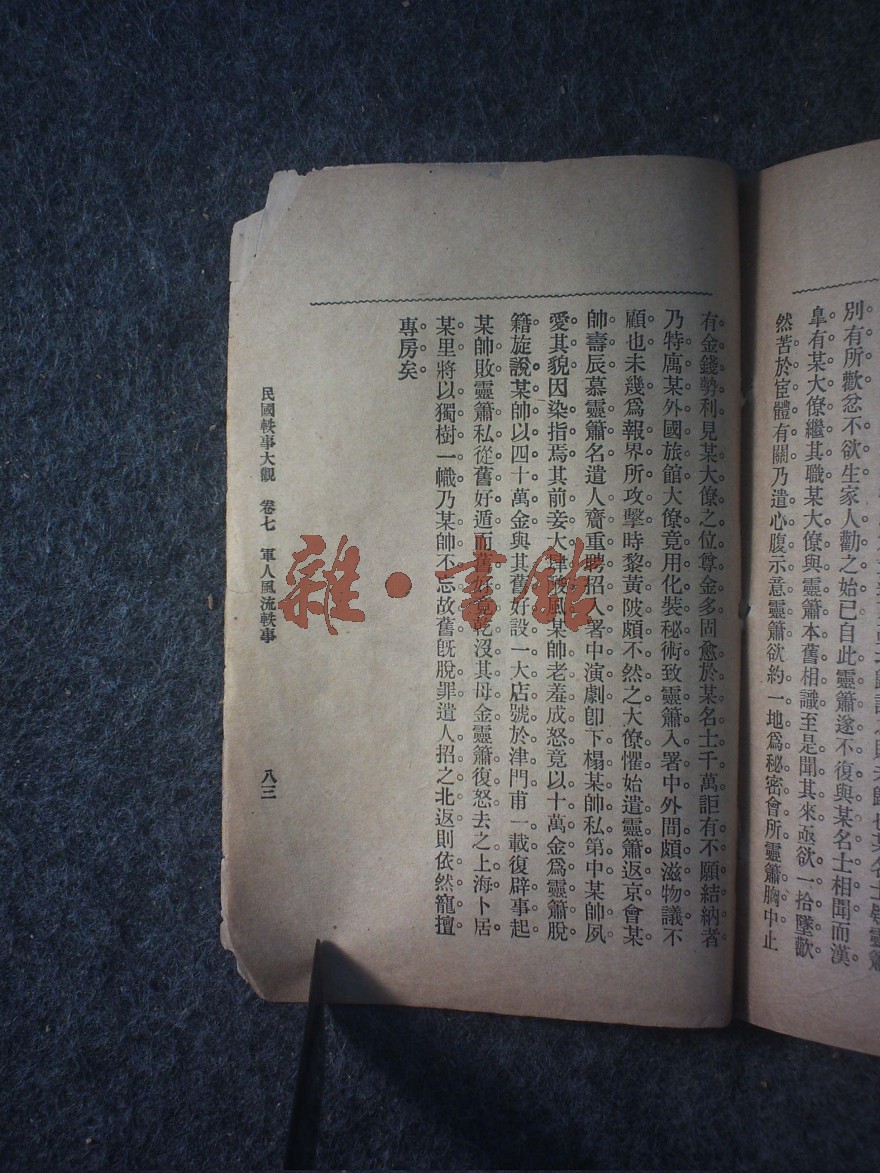 別有所歡忿不欲生家人勸之始已自此靈簫遂不復與某名士相聞而漢
皐有某大僚繼其職某大僚與靈簫本舊相識至是聞其來亟欲一拾墜歡
然苦於宦體有關乃遣心腹示意靈簫欲約一地爲秘密會所靈簫胸中止
有金錢勢利見某大僚之位尊金多固愈於某名士千萬詎有不願結納者
乃特寓某外國旅館大僚竟用化裝秘術致靈簫入署中外間頗滋物議不
顧也未幾爲報界所攻擊時黎黃陂頗不然之大僚懼始遣靈簫返京會某
帥壽辰慕靈簫名遣人齎重聘招入署中演劇卽下榻某帥私第中某帥夙
愛其貌因染指焉其前妾大肆酸風某帥老羞成怒竟以十萬金爲靈簫脫
籍旋說某帥以四十萬金與其舊好設一大店號於津門甫一載復辟事起
某帥敗靈簫私從舊好遁而舊好竟乾沒其母金靈簫復怒去之上海卜居
某里將以獨樹一幟乃某帥不忘故舊旣脫罪遣人招之北返則依然寵擅
專房矣
民國軼事大觀 卷七 軍人風流軼事 八三
雜·書館